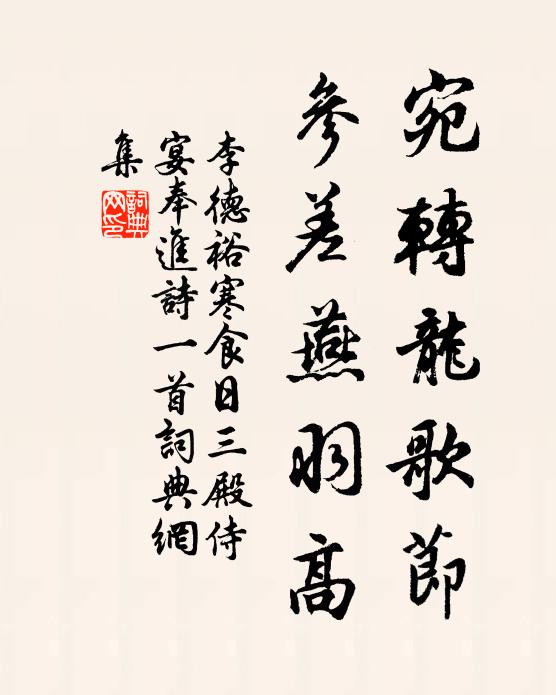 宛轉龍歌節
參差燕羽高
李德裕寒食日三殿侍
宴奉進詩一首詞典網
集
詞典
网印